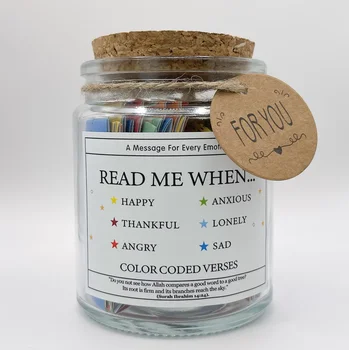 FOR YOU
A Message For Every Emoti
READ ME WHEN...
HAPPY ANXIOUS
THANKFUL LONELY
ANGRY SAD
COLOR CODED VERSES
"Do you not see how Allah compares a good word to a good tree?
Its root is firm and its branches reach the sky."
(Surah Ibrahim 14:24).